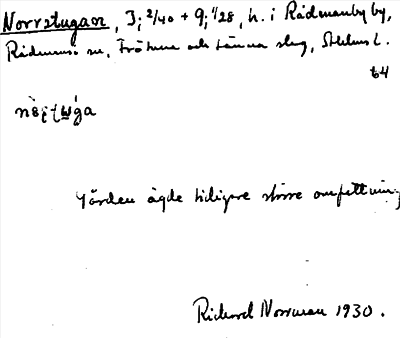 Norrstugan, I; 2/40 + 9; 1/28, h. i Rådmanby by,
Rådmansö sn, Frötuna och Länna slg, Sthlms l.
64
Gården ägde tidigare större omfattning
Richard Norrman 1930.